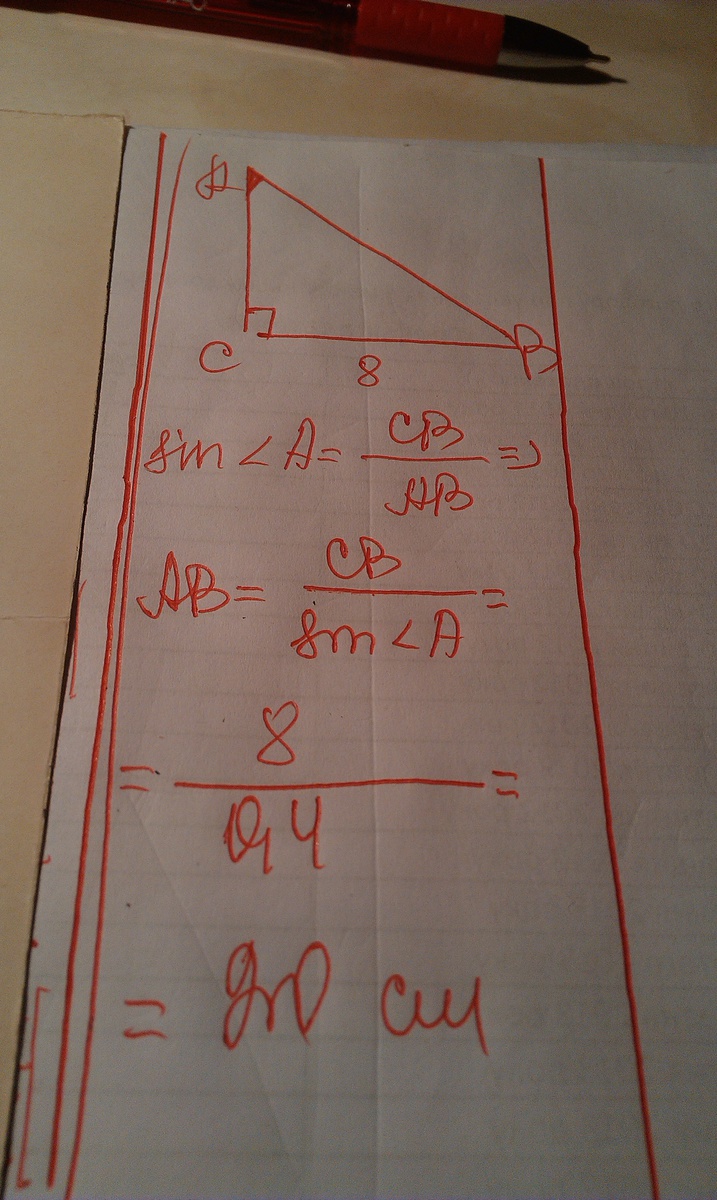 A
C
8
B
sin ∠A = CB / AB =>
AB = CB / sin ∠A =
= 8 / 0,4 =
= 20 см